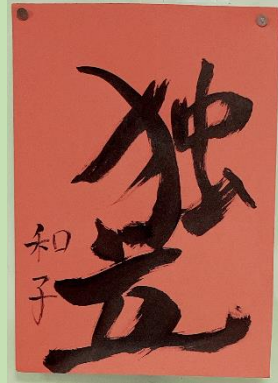 独立
和子